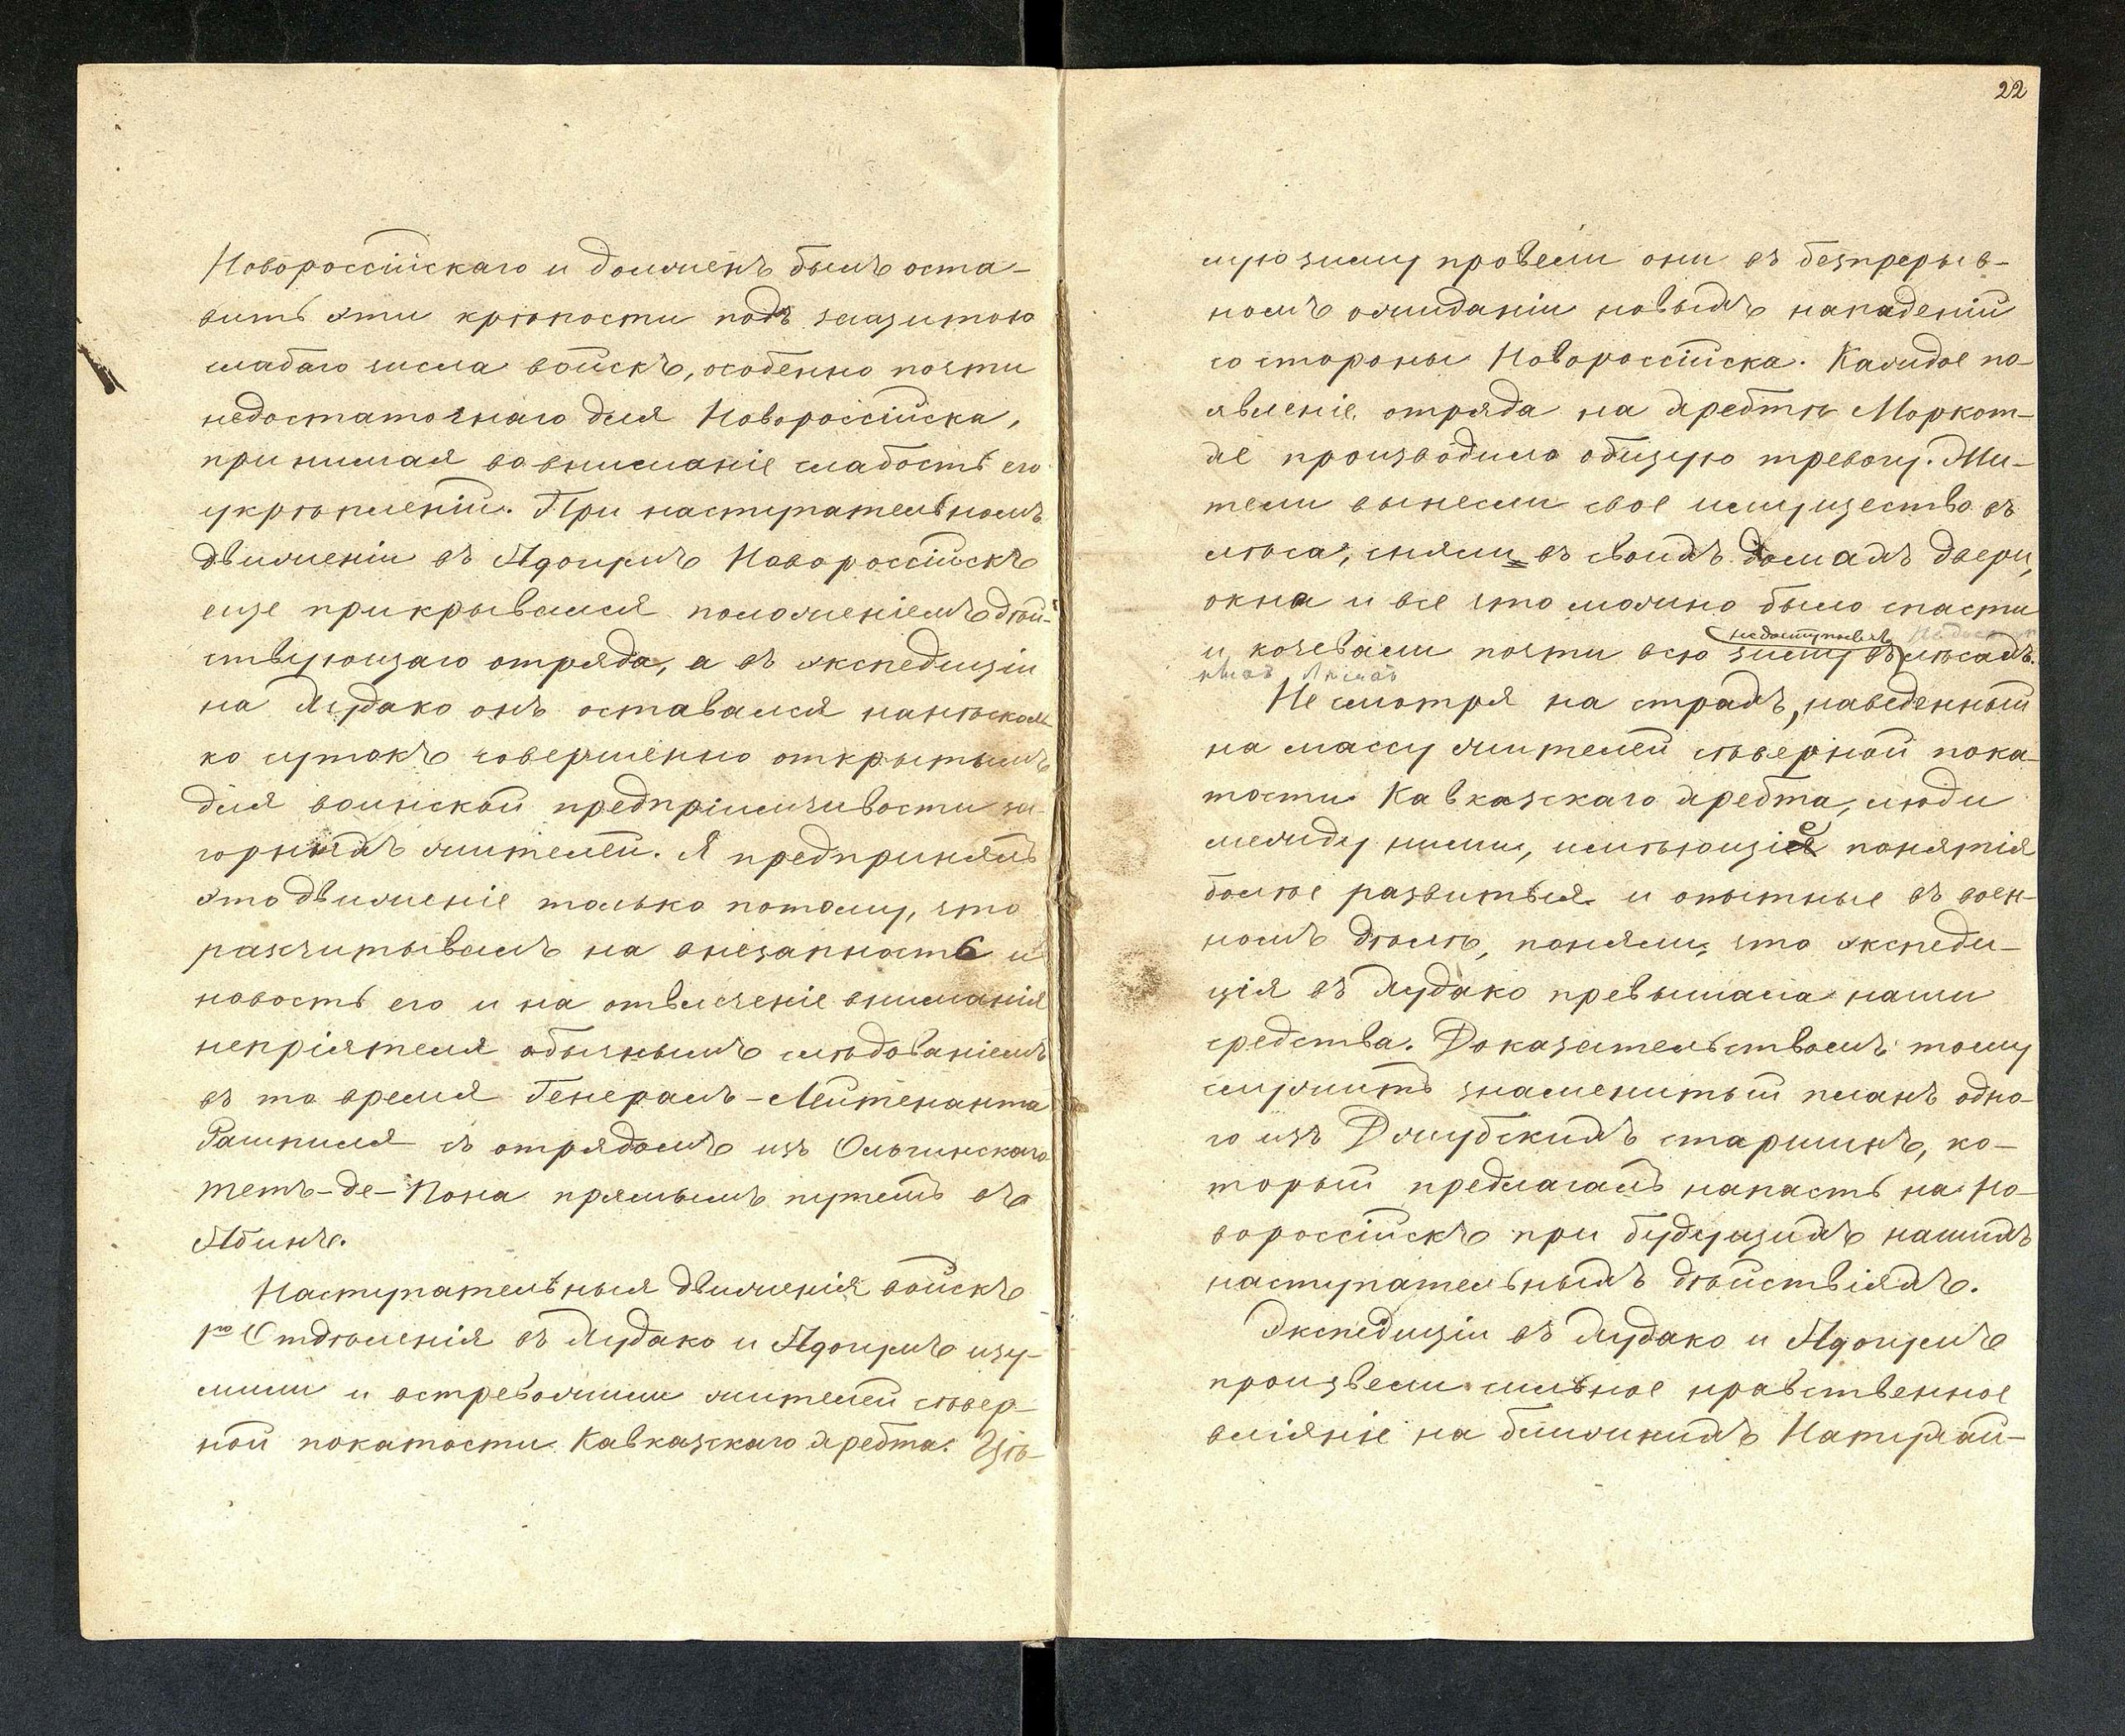 Новороссійскаго и долженъ былъ оста-
вить эти крѣпости подъ защитою
слабаго числа войскъ, особенно почти
недостаточнаго для Новороссійска,
принимая во вниманіе слабость его
укрѣпленій. При наступательномъ
движеніи въ Адогумъ Новороссійскъ
еще прикрывался положеніемъ дѣй-
ствующаго отряда, а въ экспедиціи
на Худако онъ оставался нанѣсколь
ко сутокъ совершенно открытымъ
для воинской предпріимчивости за-
горныхъ жителей. Я предпринялъ
это движеніе только потому, что
разчитывалъ на внезапность и
новость его и на отвлеченіе вниманія
непріятеля обычнымъ слѣдованіемъ
въ то время Генералъ-Лейтенанта
Рашпиля съ отрядомъ изъ Ольгинскаго
тетъ-де-Пона прямымъ путемъ въ
Абинъ.
Наступательныя движенія войскъ
1го Отдѣленія въ Худако и Адогумъ изу-
мили и встревожили жителей сѣвер-
ной покатости Кавказскаго хребта. Цѣ-
22
лую зиму провели они въ безпрерыв-
номъ ожиданіи новыхъ нападеній
со стороны Новороссійска. Каждое по-
явленіе отряда на хребтѣ Моркот-
хе производило общую тревогу. Жи-
тели вынесли свое имущество въ
лѣса, сняли въ своихъ домахъ двери,
окна и все что можно было спасти
недоступныхъ Недоступ
и кочевали почти всю зиму въ лѣсахъ.
ныхъ лѣсахъ
Не смотря на страхъ, наведенный
на массу жителей сѣверной пока-
тости Кавказскаго хребта, люди
между ними, имѣющіе понятія
болѣе развитыя и опытные въ воен-
номъ дѣлѣ, поняли, что экспеди-
ція въ Худако превышала наши
средства. Доказательствомъ тому
служитъ знаменитый планъ одно-
го изъ Джубскихъ старшинъ, ко-
торый предлагалъ напасть на Но-
вороссійскъ при будущихъ нашихъ
наступательныхъ дѣйствіяхъ.
Экспедиціи въ Худако и Адогумъ
произвели сильное нравственное
вліяніе на ближнихъ Натухай-